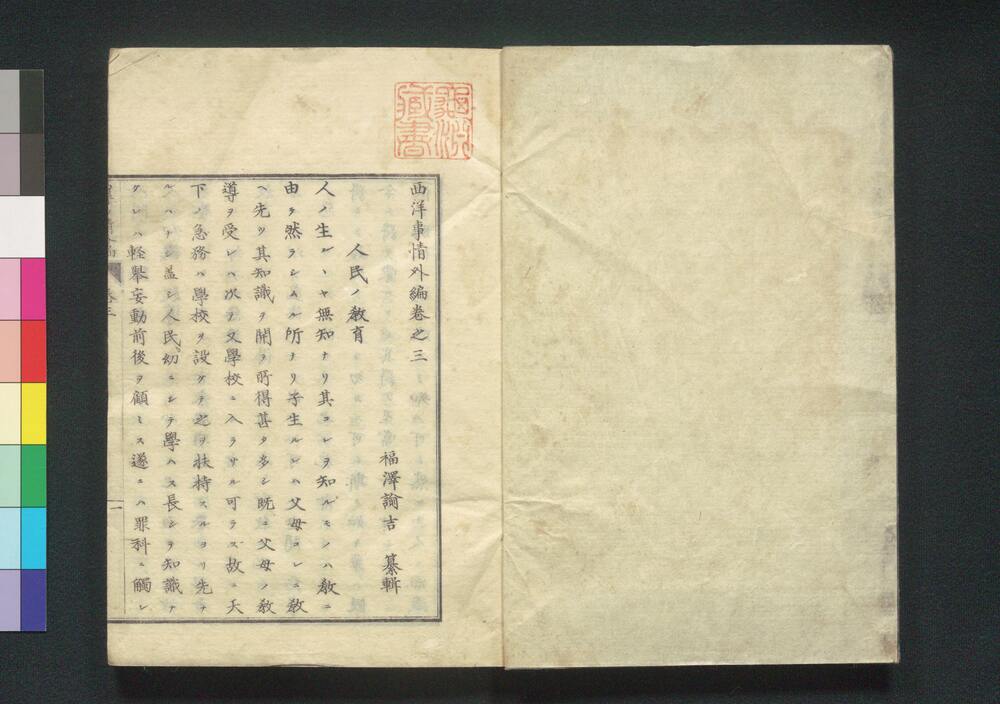 西洋事情外編卷之三
福澤諭吉 纂輯
人民ノ教育
人ノ生ルヽヤ無知ナリ其コレヲ知ルモノハ教ニ
由テ然ラシムル所ナリ子生ルレハ父母コレニ教
ヘ先ツ其知識ヲ開テ所得甚タ多シ既ニ父母ノ教
導ヲ受レハ次テ又學校ニ入ラサル可ラズ故ニ天
下ノ急務ハ學校ヲ設ケテ之ヲ扶持スルヨリ先ナ
ルハナシ蓋シ人民幼ニシテ學ハス長シテ知識ナ
ケレハ軽擧妄動前後ヲ顧ミス遂ニハ罪科ニ觸レ
卷三
一
藏書